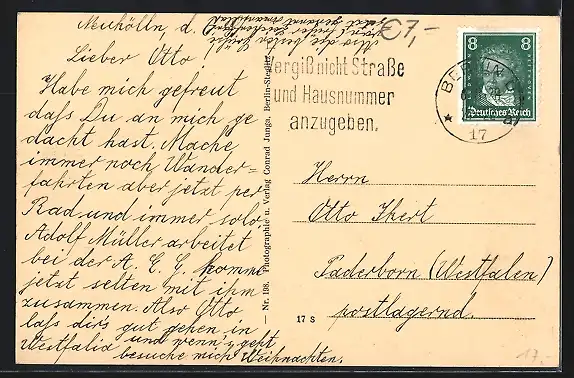 Neukölln, d.
Lieber Otto!
Habe mich gefreut
daſs Du an mich ge
dacht hast. Mache
immer noch Wander-
fahrten aber jetzt per
Rad und immer solo
Adolf Müller arbeitet
bei der A. E. G. komme
jetzt selten mit ihm
zusammen. Also Otto
laſs dirs gut gehen in
Westfalia und wenn's geht
besuche mich Weihnachten.
Also die besten Grüße
€7,-
Nr. 198. Photographie u. Verlag Conrad Junga, Berlin-Steglitz.
Vergiß nicht Straße
und Hausnummer
anzugeben.
8 8
Deutsches Reich
BERLIN
17
Herrn
Otto Ihert
Paderborn (Westfalen)
postlagernd.
17 S
17,-